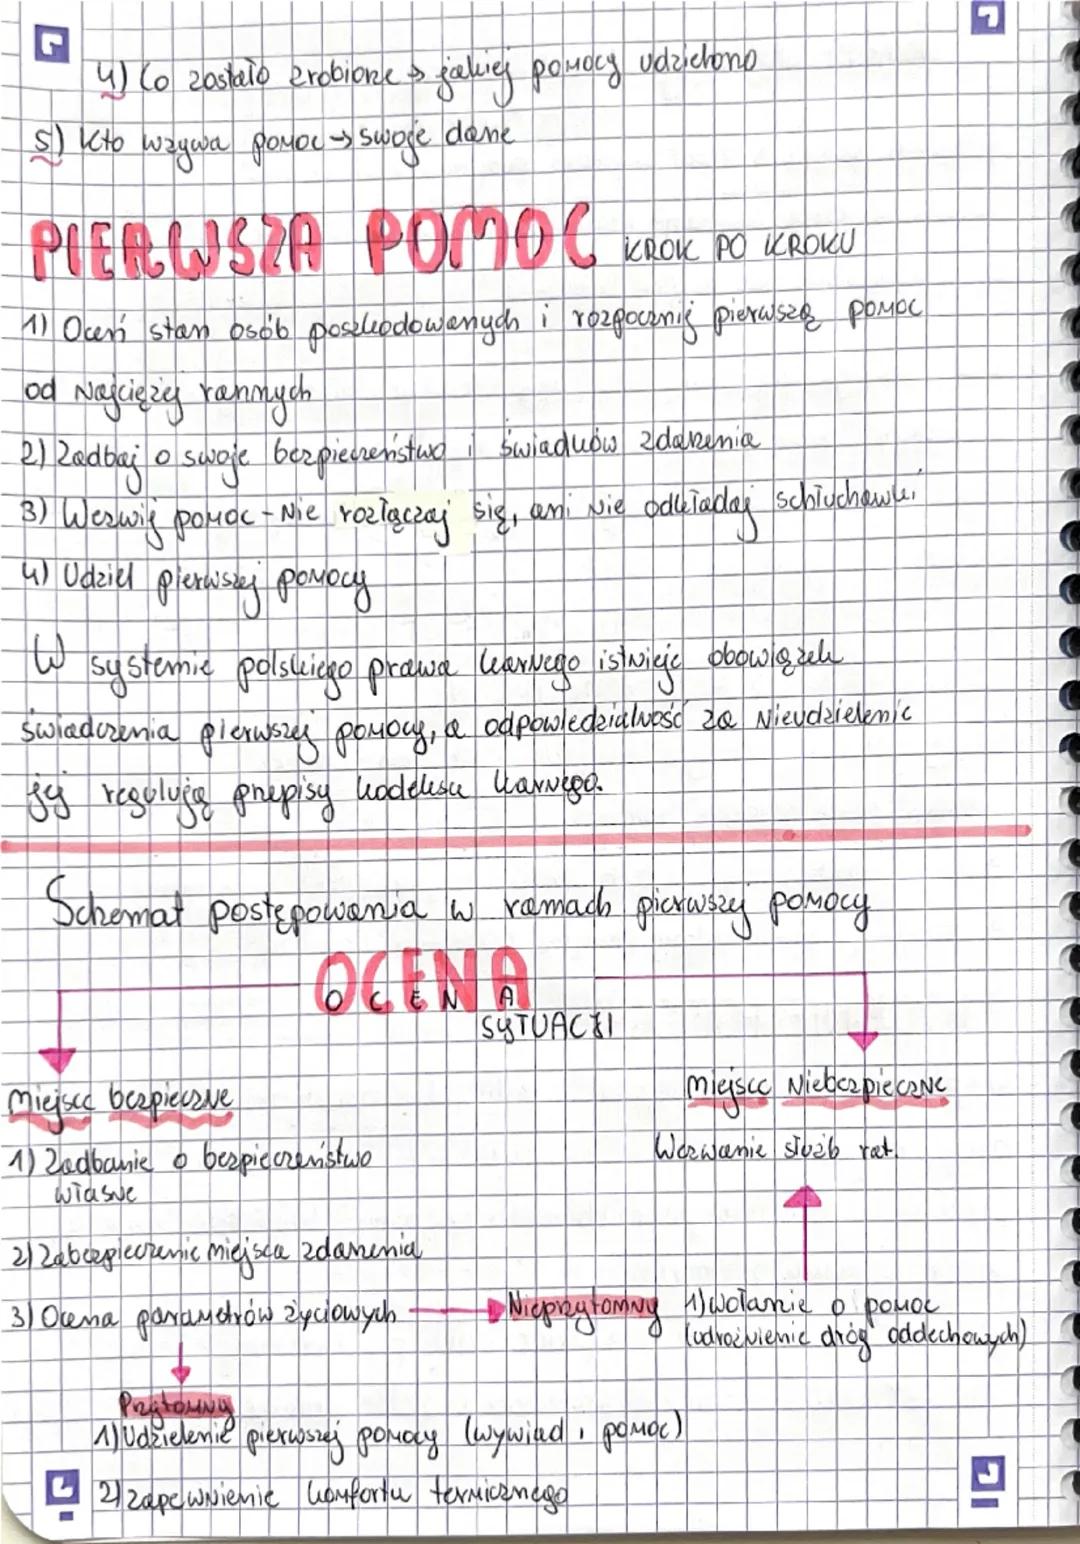 4) Co zostało zrobione → jakiej pomocy udzielono
5) Kto wzywa pomoc → swoje dane
PIERWSZA POMOC KROK PO KROKU
1) Oceń stan osób poszkodowanych i rozpocznij pierwszą pomoc
od najciężej rannych
2) Zadbaj o swoje bezpieczeństwo i świadków zdarzenia
3) Wezwij pomoc - Nie rozłączaj się, ani nie odkładaj schłuchawki
4) Udziel pierwszej pomocy
W systemie polskiego prawa karnego istnieje obowiązek
świadczenia pierwszej pomocy, a odpowiedzialność za nieudzielenie
jej regulują przepisy kodeksu karnego.
Schemat postępowania w ramach pierwszej pomocy
OCENA
SYTUACJI
miejsce bezpieczne
miejsce Niebezpieczne
1) Zadbanie o bezpieczeństwo
własne
Wezwanie służb rat.
2) Zabezpieczenie miejsca zdarzenia
3) Ocena parametrów życiowych → Nieprzytomny 1) wołanie o pomoc
(udrożnienie dróg oddechowych)
Przytomny
1) Udzielenie pierwszej pomocy (wywiad i pomoc)
2) zapewnienie komfortu termicznego